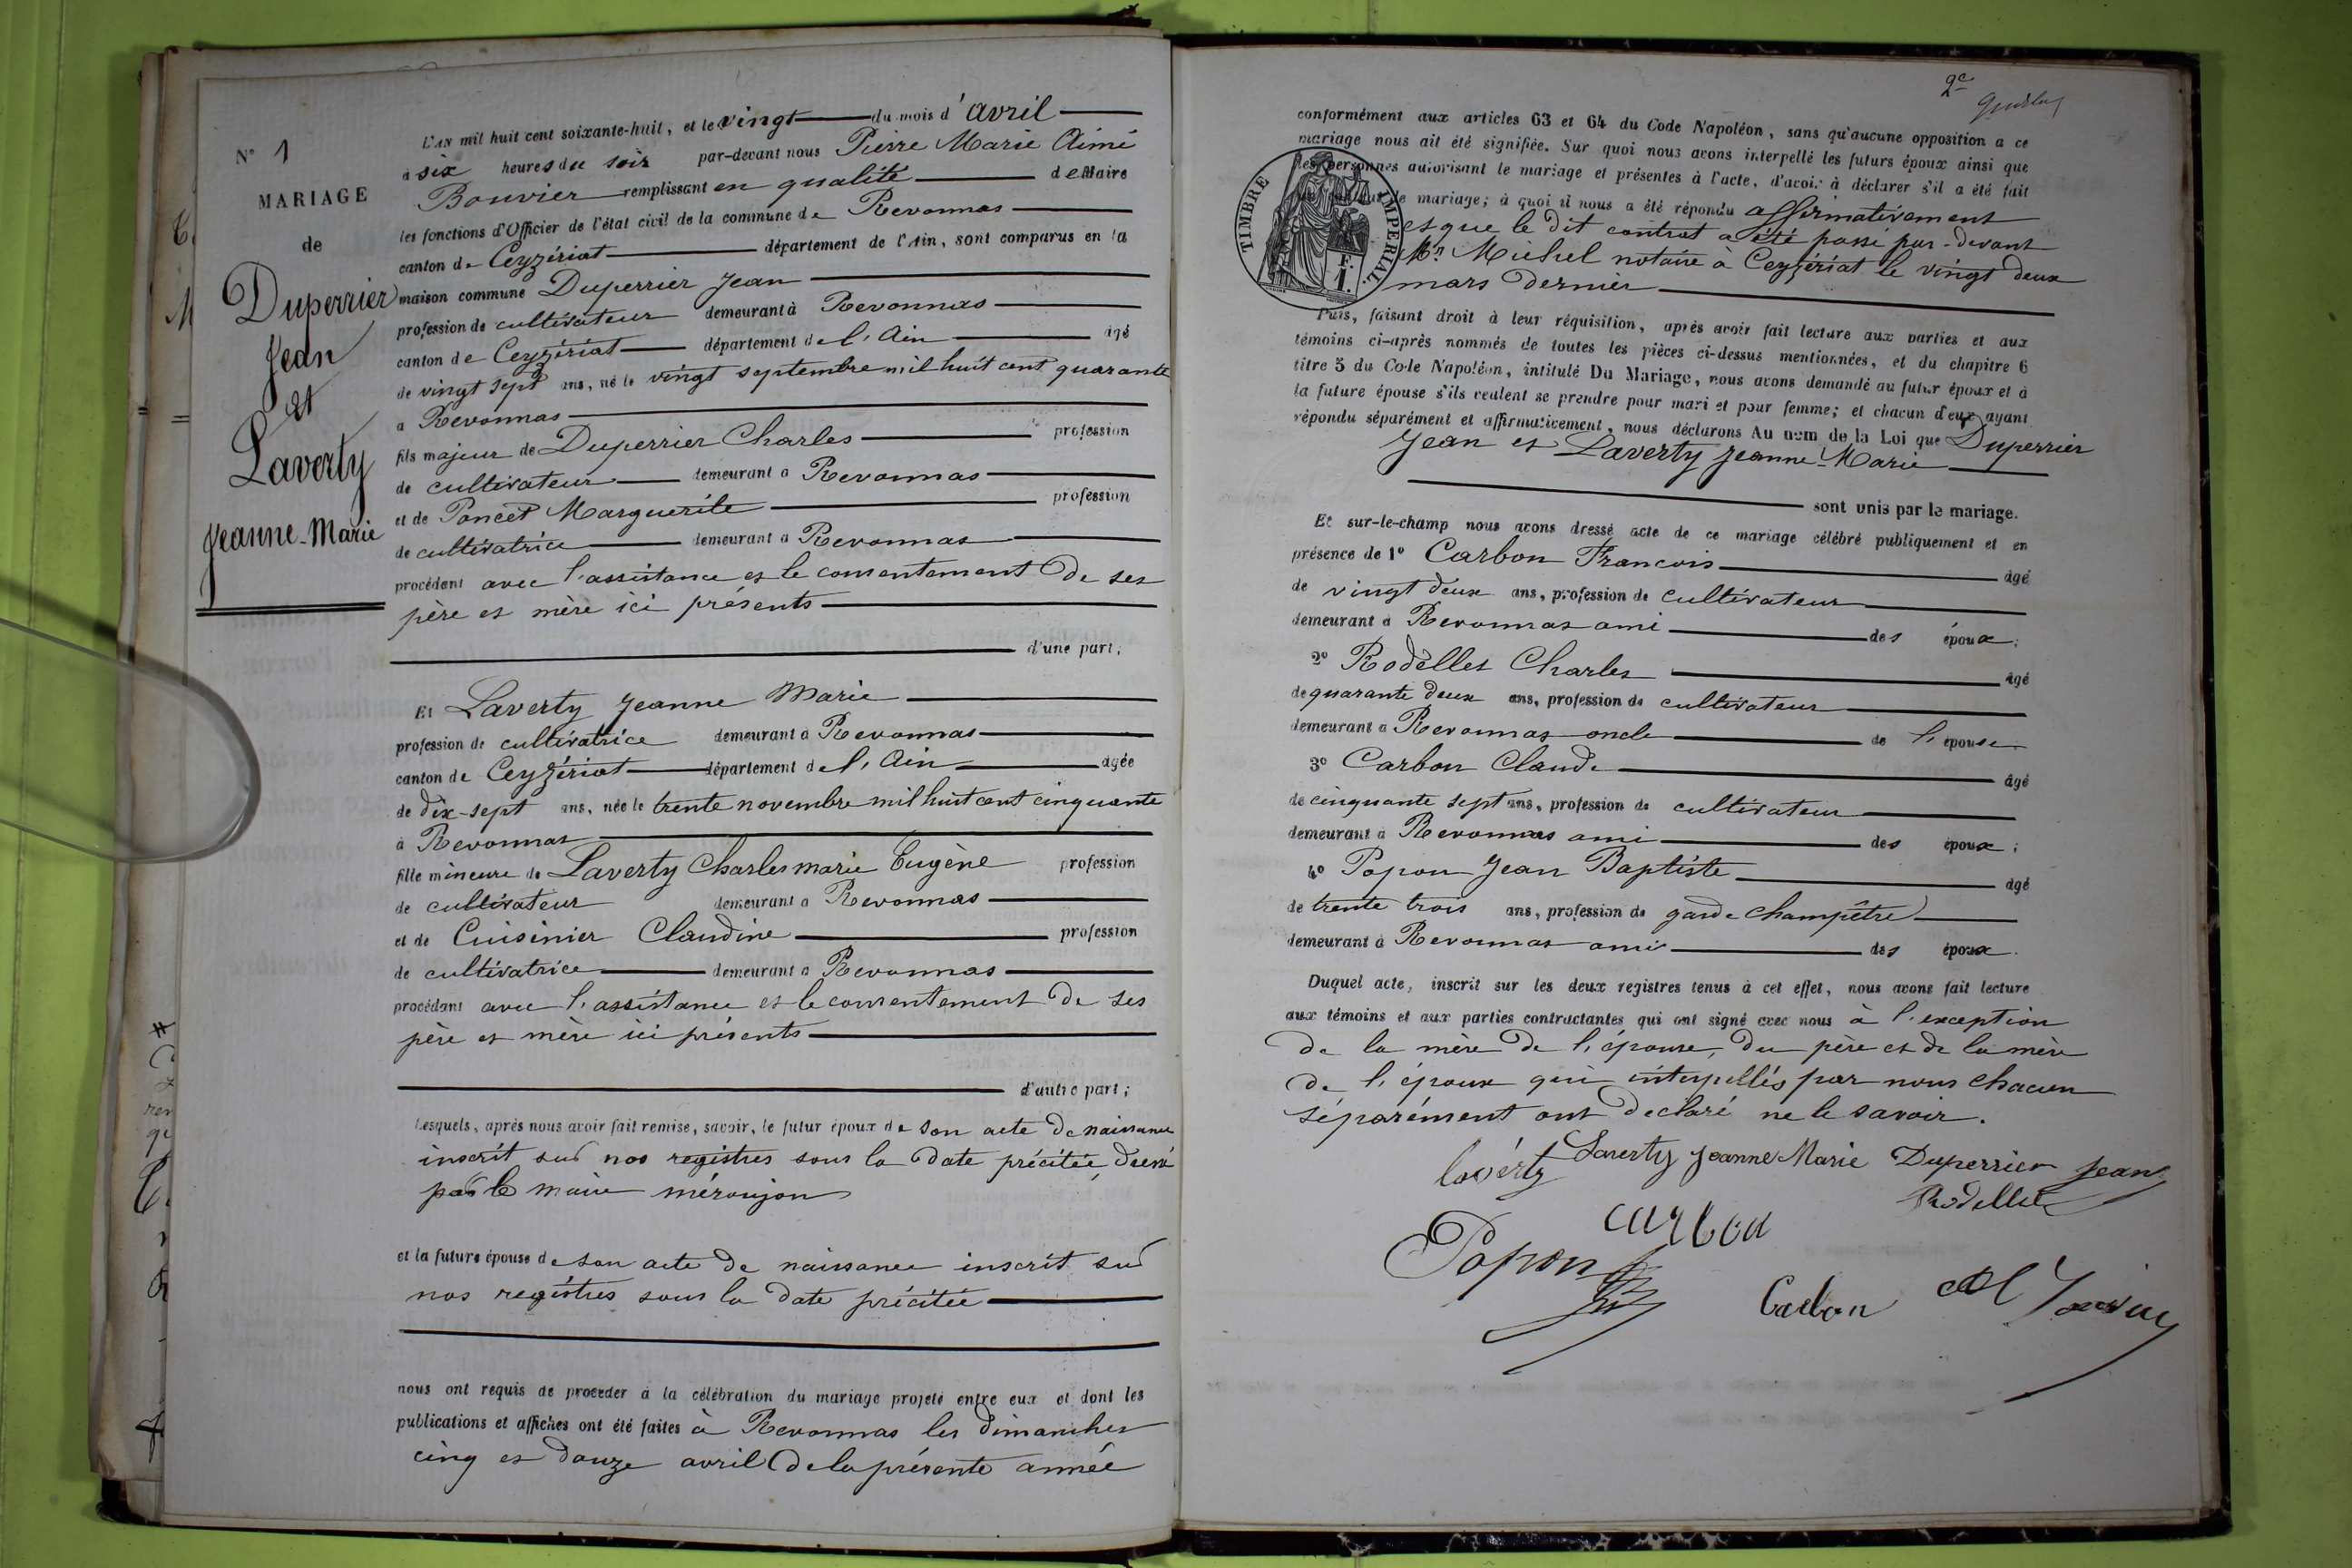 N° 1
MARIAGE
de
Duperrier
Jean
et
Laverty
Jeanne-Marie
L'AN mil huit cent soixante-huit, et le vingt du mois d'avril
à six heures du soir par-devant nous Pierre Marie Aimé
Bouvier remplissant en qualité de Maire
les fonctions d'Officier de l'état civil de la commune de Revonnas
canton de Ceyzériat département de l'Ain, sont comparus en la
maison commune Duperrier Jean
profession de cultivateur demeurant à Revonnas
canton de Ceyzériat département de l'Ain âgé
de vingt sept ans, né le vingt septembre mil huit cent quarante
à Revonnas
fils majeur de Duperrier Charles profession
de cultivateur demeurant à Revonnas
et de Poncet Marguerite profession
de cultivatrice demeurant à Revonnas
procédant avec l'assistance et le consentement de ses
père et mère ici présents
d'une part;
Et Laverty Jeanne Marie
profession de cultivatrice demeurant à Revonnas
canton de Ceyzériat département de l'Ain âgée
de dix-sept ans, née le trente novembre mil huit cent cinquante
à Revonnas
fille mineure de Laverty Charles marie Eugène profession
de cultivateur demeurant à Revonnas
et de Cuisinier Claudine profession
de cultivatrice demeurant à Revonnas
procédant avec l'assistance et le consentement de ses
père et mère ici présents
d'autre part;
Lesquels, après nous avoir fait remise, savoir, le futur époux de son acte de naissance
inscrit sur nos registres sous la date précitée,
par le maire
et la future épouse de son acte de naissance inscrit sur
nos registres sous la date précitée
nous ont requis de procéder à la célébration du mariage projeté entre eux et dont les
publications et affiches ont été faites à Revonnas les dimanches
cinq et douze avril de la présente année
2e
conformément aux articles 63 et 64 du Code Napoléon, sans qu'aucune opposition a ce
mariage nous ait été signifiée. Sur quoi nous avons interpellé les futurs époux ainsi que
les personnes autorisant le mariage et présentes à l'acte, d'avoir à déclarer s'il a été fait
de mariage; à quoi il nous a été répondu affirmativement
TIMBRE IMPERIAL
et que le dit contrat a été passé par-devant
Mr Michel notaire à Ceyzériat le vingt deux
mars dernier
Puis, faisant droit à leur réquisition, après avoir fait lecture aux parties et aux
témoins ci-après nommés de toutes les pièces ci-dessus mentionnées, et du chapitre 6
titre 5 du Code Napoléon, intitulé Du Mariage, nous avons demandé au futur époux et à
la future épouse s'ils veulent se prendre pour mari et pour femme; et chacun d'eux ayant
répondu séparément et affirmativement, nous déclarons Au nom de la Loi que Duperrier
Jean et Laverty Jeanne-Marie
sont unis par le mariage.
Et sur-le-champ nous avons dressé acte de ce mariage célébré publiquement et en
présence de 1° Carbon Francois âgé
de vingt deux ans, profession de cultivateur
demeurant à Revonnas ami des époux;
2° Rodellet Charles âgé
de quarante deux ans, profession de cultivateur
demeurant à Revonnas oncle de l'épouse
3° Carbon Claude âgé
de cinquante sept ans, profession de cultivateur
demeurant à Revonnas ami des époux;
4° Popon Jean Baptiste âgé
de trente trois ans, profession de garde champêtre
demeurant à Revonnas ami des époux.
Duquel acte, inscrit sur les deux registres tenus à cet effet, nous avons fait lecture
aux témoins et aux parties contractantes qui ont signé avec nous à l'exception
de la mère de l'épouse, du père et de la mère
de l'époux qui interpellés par nous chacun
séparément ont declaré ne le savoir.
lavérty Laverty Jeanne Marie Duperrier Jean
Rodellet
carbon
Popon
Carbon